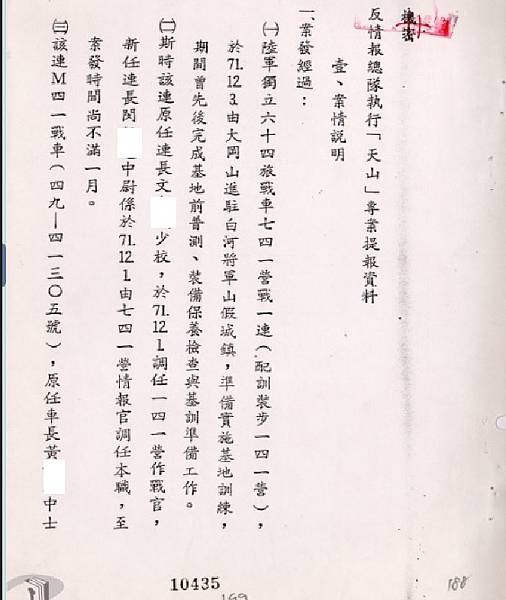 機密
反情報總隊執行「天山」專案提報資料
壹、案情說明
一、案發經過：
㈠陸軍獨立六十四旅戰車七四一營戰一連（配訓裝步一四一營），
於71.12.3.由大岡山進駐白河將軍山假城鎮，準備實施基地訓練，
期間曾先後完成基地前普測、裝備保養檢查與基訓準備工作。
㈡斯時該連原任連長文 少校，於71.12.1.調任一四一營作戰官，
新任連長閔 中尉係於71.12.1.由七四一營情報官調任本職，至
案發時間尚不滿一月。
㈢該連M四一戰車（四九—四一三〇五號），原任車長黃 中士
10435
188